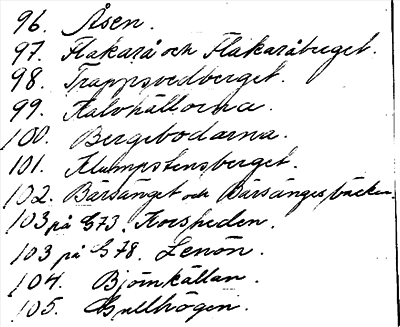 96. Åsen.
97. Flakarå och Flakaråberget.
98. Trappsvedberget.
99. Kalvhällorna.
100. Bergebodarna.
101. Klumpstensberget.
102. Bärsänget och Bärsängesbäcken.
103 på G73. Korsheden.
103 på G78. Lenön.
104. Björnkällan.
105. Gullhögen.